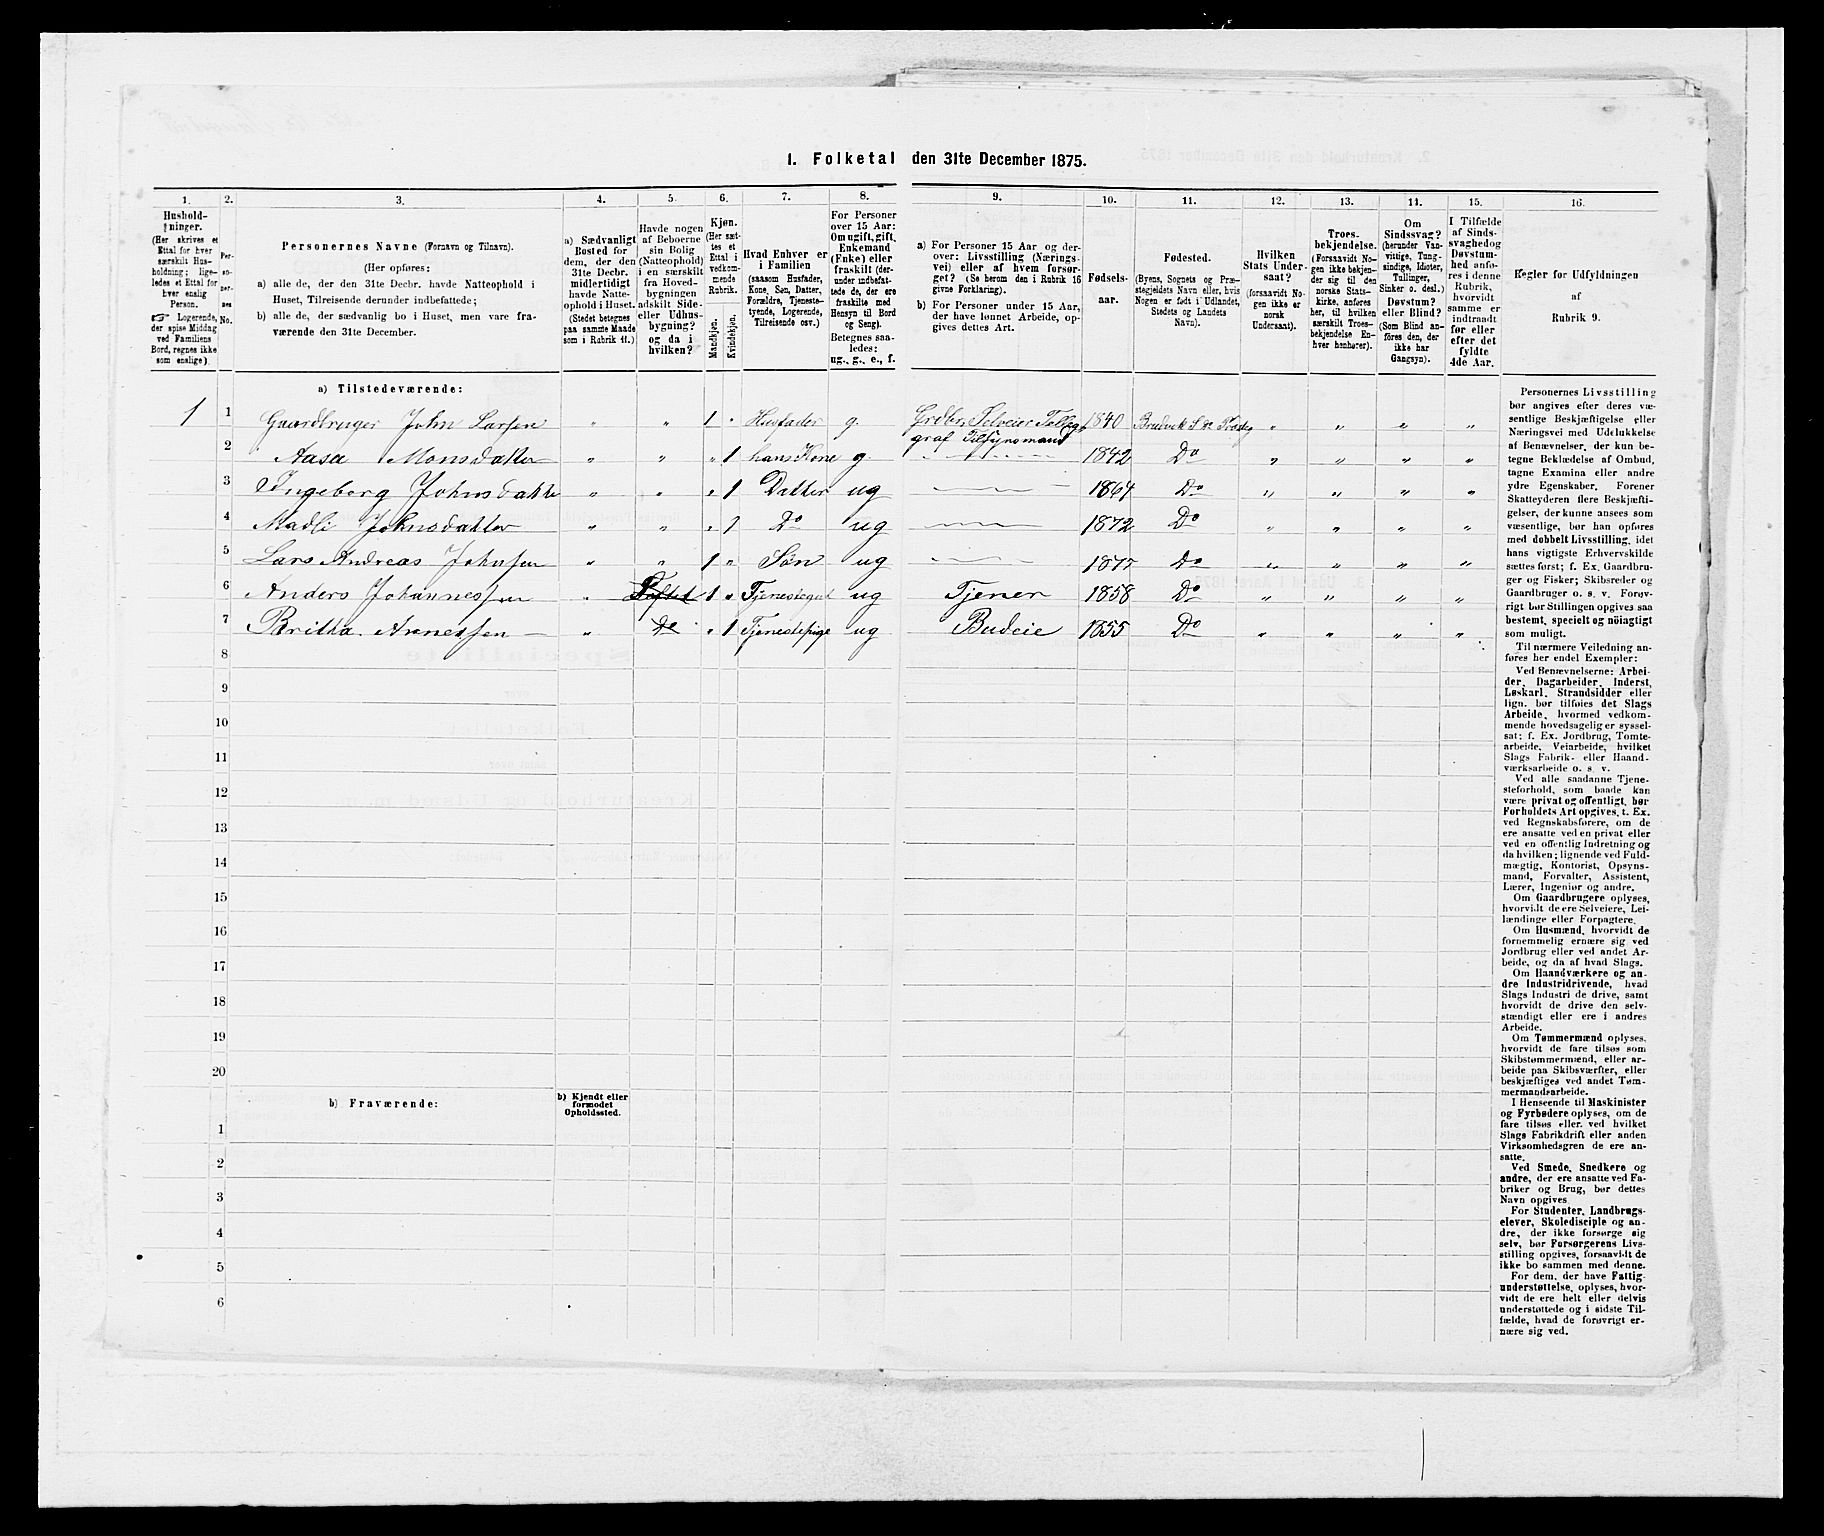 1. Folketal den 31te December 1875.
1.
Hushold-
ninger.
(Her skrives et
Ettal for hver
særskilt Hus-
holdning; lige-
ledes et Ettal for
hver enslig
Person.
☞ Logerende,
der spise Middag
ved Familiens
Bord, regnes ikke
som enslige)
2.
Per-
so-
ner-
nes
No.
3.
Personernes Navne (Fornavn og Tilnavn).
(Her opføres:
a) alle de, der den 31te Decbr. havde Natteophold i
Huset, Tilreisende derunder indbefattede;
b) alle de, der sædvanlig bo i Huset, men vare fra-
værende den 31te December.
4.
a) Sædvanligt
Bosted for
dem, der den
31te Decbr.
midlertidigt
havde Natte-
ophold i Huset.
(Stedet betegnes
paa samme Maade
som i Rubrik 11.)
5.
Havde nogen
af Beboerne
sin Bolig
(Natteophold)
i en særskilt
fra Hoved-
bygningen
adskilt Side-
eller Udhus-
bygning?
og da i
hvilken?
6.
Kjøn.
(Her sæt-
tes et
Ettal i
vedkom-
mende
Rubrik.
Mandkjøn.
Kvindekjøn.
7.
Hvad Enhver er
i Familien
(saasom Husfader,
Kone, Søn, Datter,
Forældre, Tjeneste-
tyende, Logerende,
Tilreisende osv.)
8.
For Personer
over 15 Aar:
Om ugift, gift,
Enkemand
(Enke) eller
fraskilt (der-
under indbefat-
tede de, der ere
fraskilte med
Hensyn til Bord
og Seng).
Betegnes saa-
ledes:
ug., g., e., f.
9.
a) For Personer 15 Aar og der-
over: Livsstilling (Nærings-
vei) eller af hvem forsør-
get? (Se herom den i Rubrik 16
givne Forklaring).
b) For Personer under 15 Aar,
der have lønnet Arbeide, op-
gives dettes Art.
10.
Fødsels-
aar.
11.
Fødested.
(Byens, Sognets og Præ-
stegjeldets Navn eller, hvis
Nogen er født i Udlandet,
Stedets og Landets
Navn).
12.
Hvilken
Stats Under-
saat?
(forsaavidt No-
gen ikke er
norsk
Undersaat).
13.
Troes-
bekjendelse.
(Forsaavidt No-
gen ikke bekjen-
der sig til den
norske Stats-
kirke, anføres
her, til hvilken
særskilt Troes-
bekjendelse En-
hver henhører).
14.
Om
Sindssvag?
(herunder Van-
vittige, Tung-
sindige, Idioter,
Tullinger,
Sinker o. desl.)
Døvstum?
eller Blind?
(Som Blind an-
føres den, der
ikke har
Gangsyn).
15.
I Tilfælde
af Sinds-
svaghed og
Døvstum-
hed anfø-
res i denne
Rubrik,
hvorvidt
samme er
indtraadt
før eller
efter det
fyldte
4de Aar.
16.
Regler for Udfyldningen
af
Rubrik 9.
a) Tilstedeværende:
1 1 Gaardbruger John Larsen " " 1 " Husfader g. Grdbr. Selveier 1840 Bruvik
graf Tilsynsmand
2 Aasa Monsdatter " " " 1 hans Kone g 1842 Do " " " "
3 Ingeborg Johnsdatter " " " 1 Datter ug 1864 Do " " " "
4 Madli Johnsdatter " " " 1 Do ug 1872 Do " " " "
5 Lars Andreas Johnsen " " 1 " Søn ug Do " " " "
6 Anders Johannessen " 1 " Tjenestegut ug Tjener 1858 Do " " " "
7 Britha Arnessen " Do " 1 Tjenestepige ug Budeie 1855 Do " " " "
8
9
10
11
12
13
14
15
16
17
18
19
20
b) Fraværende:
b) Kjendt eller
formodet
Opholdssted.
1
2
3
4
5
6
Personernes Livsstilling
bør angives efter deres væ-
sentlige Beskjæftigelse eller
Næringsvei med Udelukkelse
af Benævnelser, der kun be-
tegne Beklædelse af Ombud,
tagne Examina eller andre
ydre Egenskaber. Forener
Skatteyderen flere Beskjæfti-
gelser, der kunne ansees som
væsentlige, bør han opføres
med dobbelt Livsstilling, idet
hans vigtigste Erhvervskilde
sættes først; f. Ex. Gaardbru-
ger og Fisker; Skibsreder og
Gaardbruger o. s. v. Forøv-
rigt bør Stillingen opgives saa
bestemt, specielt og nøiagtigt
som muligt.
Til nærmere Veiledning an-
føres her endel Exempler:
Ved Benævnelserne: Arbei-
der, Dagarbeider, Inderst,
Løskarl, Strandsidder eller
lign. bør tilføies det Slags
Arbeide, hvormed vedkom-
mende hovedsagelig er syssel-
sat; f. Ex. Jordbrug, Tomte-
arbeide, Veiarbeide, hvilket
Slags Fabrik- eller Haand-
værksarbeide o. s. v.
Ved alle saadanne Tjene-
steforhold, som baade kan
være privat og offentligt, bør
Forholdets Art opgives, t. Ex.
ved Regnskabsførere, om de
ere ansatte ved en privat eller
ved en offentlig Indretning og
da hvilken; lignende ved Fuld-
mægtig, Kontorist, Opsyns-
mand, Forvalter, Assistent,
Lærer, Ingeniør og andre.
Om Gaardbrugere oplyses,
hvorvidt de ere Selveiere, Lei-
lændinge eller Forpagtere.
Om Husmænd, hvorvidt de
fornemmelig ernære sig ved
Jordbrug eller ved andet Ar-
beide, og da af hvad Slags.
Om Haandværkere og an-
dre Industridrivende, hvad
Slags Industri de drive, samt
hvorvidt de drive den selv-
stændigt eller ere i andres
Arbeide.
Om Tømmermænd oplyses,
hvorvidt de fare tilsøs som
Skibstømmermænd, eller ar-
beide paa Skibsværfter, eller
beskjæftiges ved andet Tøm-
mermandsarbeide.
I Henseende til Maskinister
og Fyrbødere oplyses, om de
fare tilsøs eller ved hvilket
Slags Fabrikdrift eller anden
Virksomhedsgren de ere an-
satte.
Ved Smede, Snedkere og
andre, der ere ansatte ved Fa-
briker og Brug, bør dettes
Navn opgives.
For Studenter, Landbrugs-
elever, Skoledisciple og an-
dre, der ikke forsørge sig
selv, bør Forsørgerens Livs-
stilling opgives, forsaavidt de
ikke bo sammen med denne.
For dem, der have Fattig-
understøttelse, oplyses, hvor-
vidt de ere helt eller delvis
understøttede og i sidste Til-
fælde, hvad de forøvrigt er-
nære sig ved.